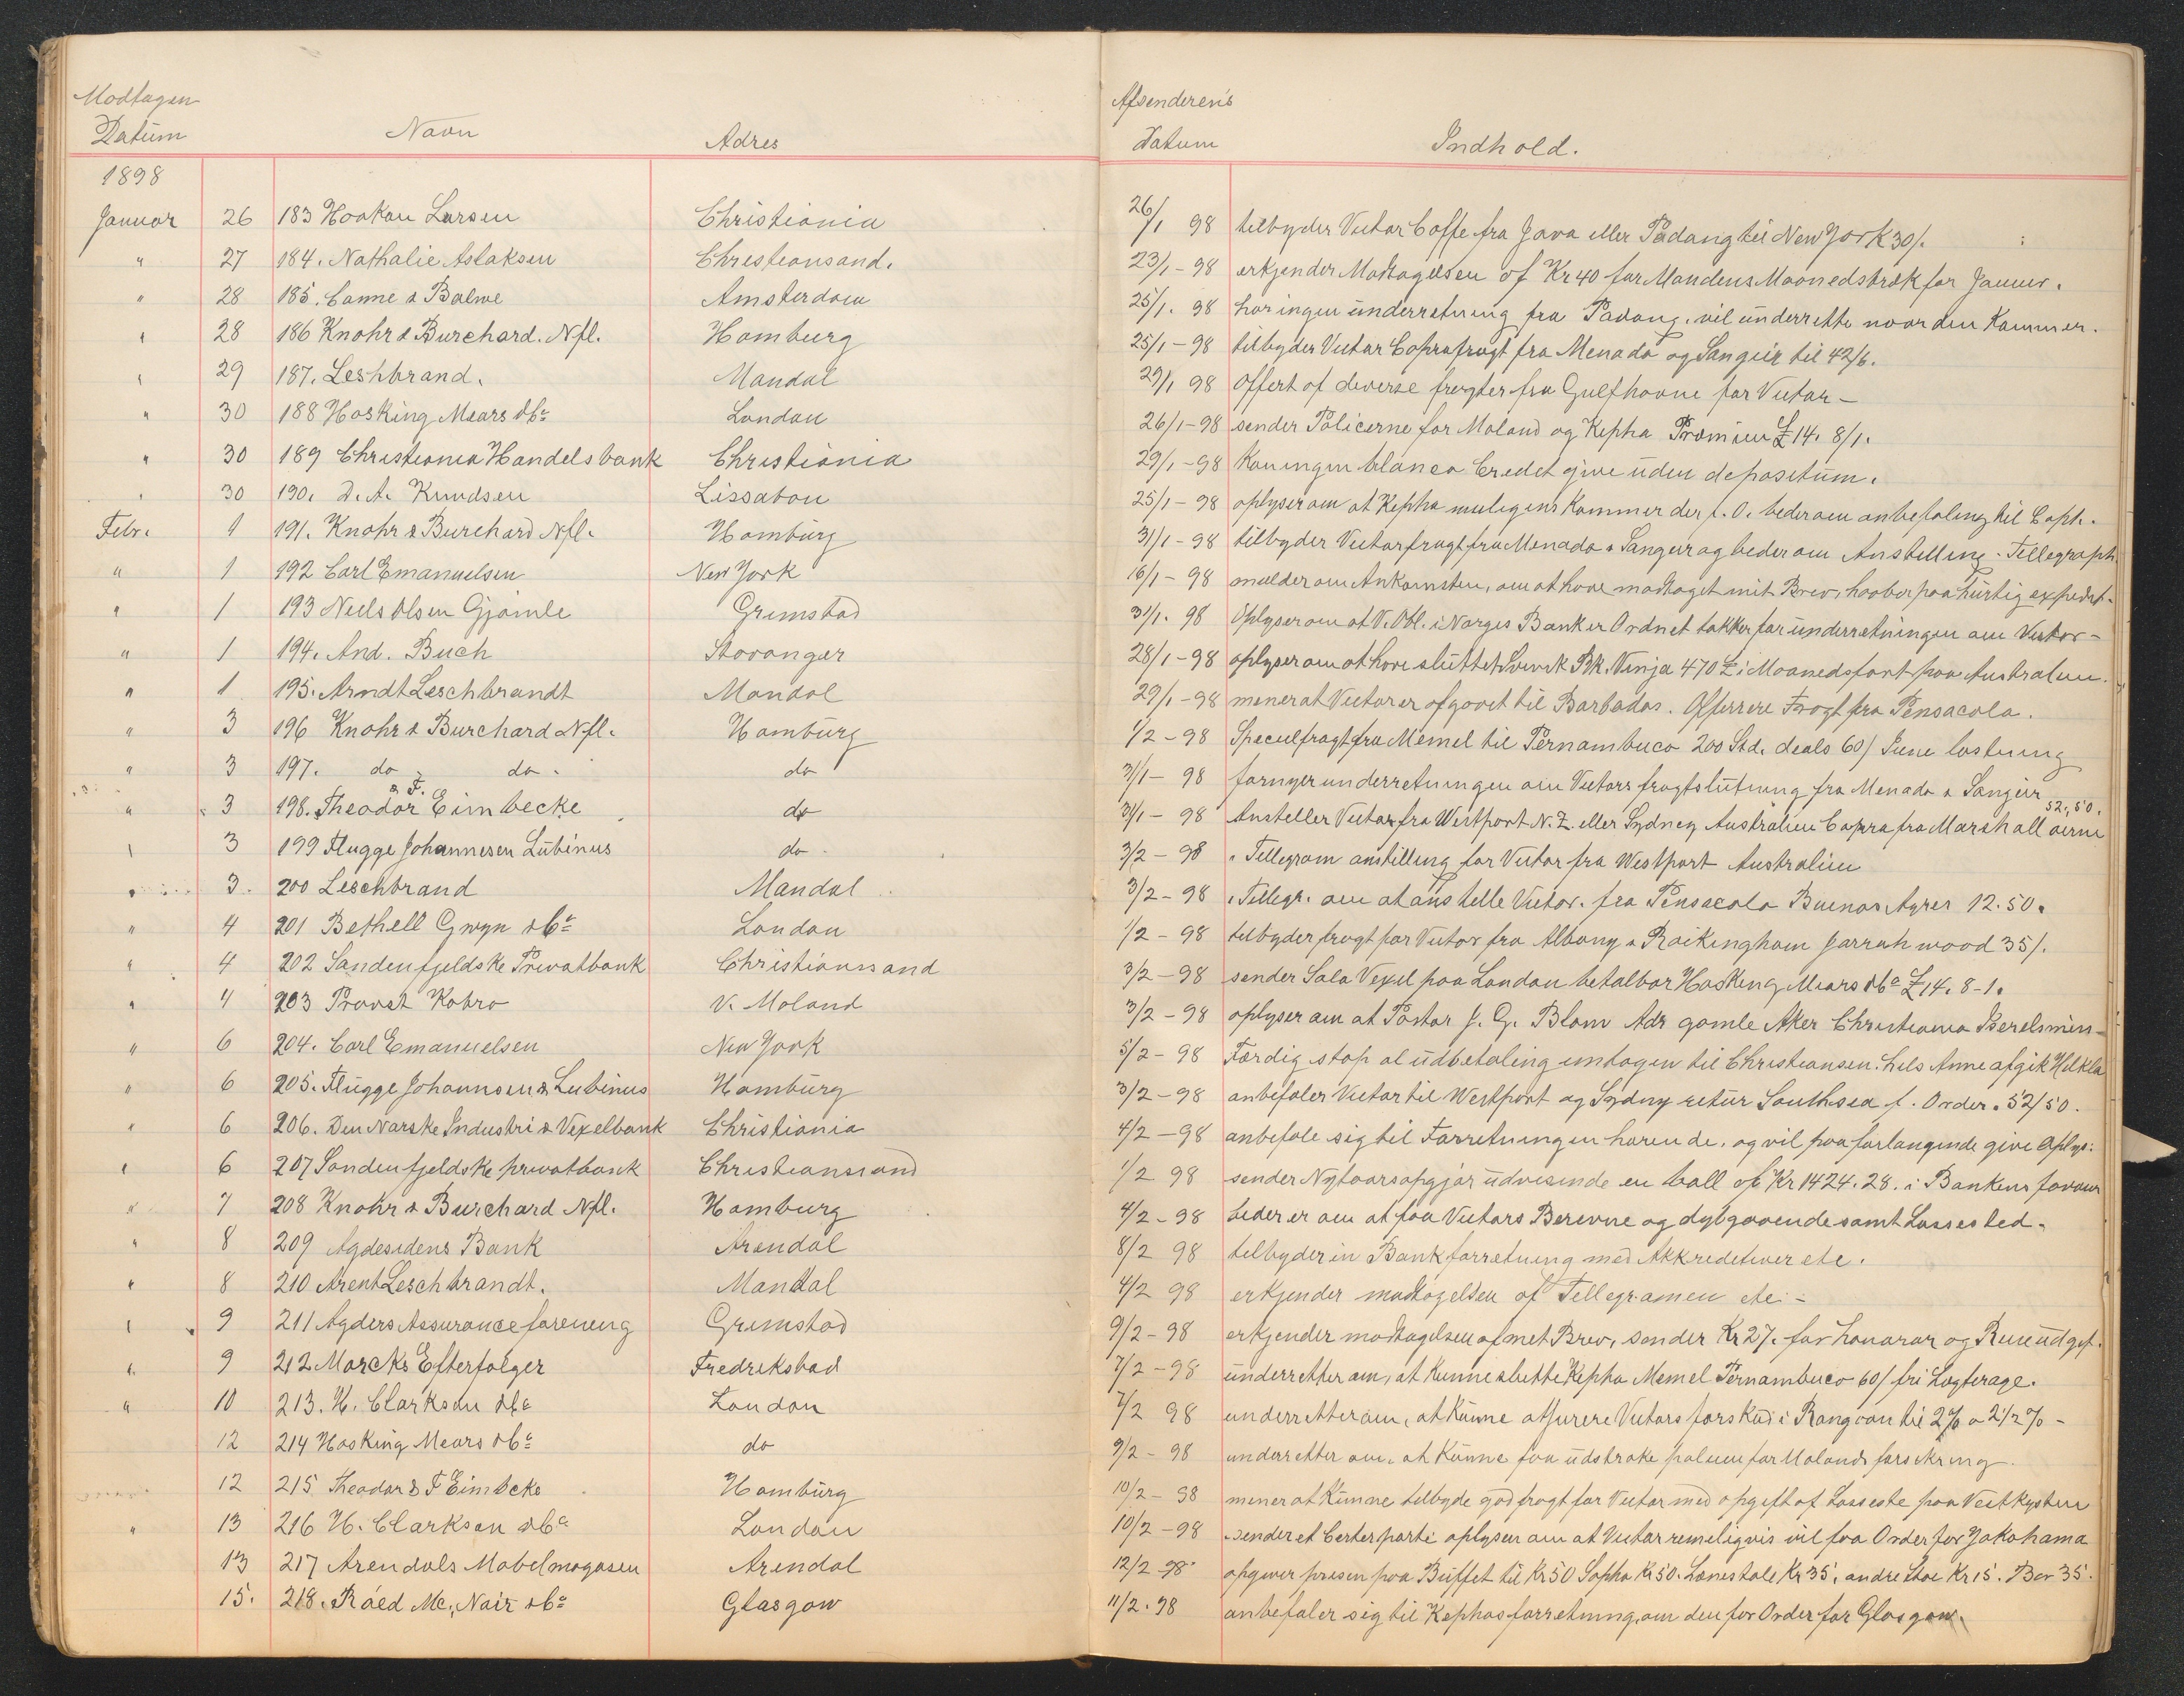 Modtagen
Datum Navn Adres
1898
Januar 26 183 Hookon Larsen Christiania
" 27 184. Nathalie Aslaksen Christiansand.
" 28 185. Canne & Balwe Amsterdam
" 28 186 Knohr & Burchard. Nfl. Homburg
" 29 187. Leshbrand. Mandal
" 30 188 Hosking Mears & Co London
" 30 189 Christiania Handelsbank Christiania
" 30 190. D. A. Knudsen Lissabon
Febr. 1 191. Knohr & Burchard Nfl. Hamburg
" 1 192 Carl Emanuelsen New York
" 1 193 Niels Olsen Gjömle Grimstad
" 1 194. And. Buch Stavanger
" 1 195. Arndt Leschbrandt Mandal
" 3 196 Knohr & Burchard Nfl. Hamburg
" 3 197. do do. do
" 3 198. Theodor & F. Eimbecke do
" 3 199 Flugge Johannesen Lübinus do.
" 3. 200 Leschbrand Mandal
" 4 201 Bethell Gwyn & Co London
" 4 202 Sandenfjeldske Privatbank Christianssand
" 4 203 Provst Kobro V. Moland
" 6 204. Carl Emanuelsen New York
" 6 205. Flügge Johannsen & Lubinus Hamburg
" 6 206. Den Norske Industri & Vexelbank Christiania
" 6 207 Sondenfjeldske privatbank Christianssand
" 7 208 Knohr & Burchard Nfl. Hamburg
" 8 209 Agdesidens Bank Arendal
" 8 210 Arent Leschbrandt. Mandal
" 9 211 Agders Assuranceforening Grimstad
" 9 212 Marcks Efterfølger Fredrikstad
" 10 213. H. Clarkson & Co London
12 214 Hosking Mears & Co do
12 215 Theodor & F Eimbcke Hamburg
" 13 216 H. Clarkson & Co London
13 217 Arendals Møbelmagasen Arendal
15. 218. Ráed Mc, Nair & Co Glasgow
Afsenderens
Datum Indhold.
26/1 98 tilbyder Victor Coffe fra Java eller Padang til New York 30/.
23/1-98 erkjender Modtagelsen af Kr 40 for Mandens Maanedstræk for Januar.
25/1. 98 har ingen underretning fra Padang. vil underrette naar den Kommer.
25/1-98 tilbyder Victor Coprafragt fra Menado og Sangeir til 42/6.
29/1 98 Offert af diverse fragter fra Gulfhavne for Victor -
26/1-98 sender Policerne for Moland og Kepha Præmien £ 14. 8/1.
29/1-98 Kan ingen blanco Credit give uden depositum.
25/1-98 oplyser om at Kepha muligens Kommer der f. O. beder om anbefaling til Capt.
31/1-98 tilbyder Victor fragt fra Menado & Sangeir og beder om Anstilling - Tellegraph.
16/1-98 melder om Ankomsten, om at have modtaget mit Brev, haaber paa hurtig expedit.
31/1. 98 Oplyser om at V. Obl. i Norges Bank er Ordnet takker for underretningen om Victor -
28/1-98 oplyser om at have sluttet Svensk Bk. Ninja 470 £ i Maanedsfart paa Australien.
29/1-98 mener at Victor er afgaaet til Barbados. Offerere Fragt fra Pensacola.
1/2-98 Speculfragt fra Memel til Pernambuco 200 Std. deals 60/ June lastning
31/1-98 fornyer underretningen om Victors fragtslutning fra Menado & Sangeir
31/1-98 Ansteller Victor fra Westport N. Z. eller Sydney Australien Copra fra Marshall øerne 52,50.
3/2-98 Tellegram anstilling for Victor fra Westport Australien
3/2-98 Tellegr. om at anstelle Victor. fra Pensacola Buenos Ayres 12.50.
1/2-98 tilbyder fragt for Victor fra Albany & Rockingham Jarrah wood 35/.
3/2-98 sender Sola Vexel paa London betalbar Hosking Mears & Co £ 14. 8-1.
3/2-98 oplyser om at Pastor J. G. Blom Adr gamle Aker Christiania
5/2-98 Færdig stop al udbetaling undtagen til Christiansen. hils Anne afgik
3/2-98 anbefaler Victor til Westport og Sydny retur Southsea f. Order. 52/50.
4/2-98 anbefale sig til Forretningen og vil paa forlangende give Oplys:
1/2 98 sender Nytaarsopgjør udvisende en ball af Kr 1424.28. i Bankens favour
4/2-98 beder er om at faa Victors Berevne og dybgaaende samt Lassested.
8/2 98 tilbyder in Bankforretning med Akkreditiver etc.
4/2 98 erkjender modtagelsen af Tellegramen etc -
9/2-98 erkjender modtagelsen af met Brev, sender Kr 27. for honorar og
7/2-98 underretter om, at Kunne slutte Kepha Memel Pernambuco 60/ fri Lagterage.
7/2 98 underretter om, at Kunne Victors forskud i Rangoon til 2% a 2 1/2 % -
9/2-98 underretter om, at Kunne faa udstrake for Molands forsikring.
10/2-98 mener at Kunne tilbyde god fragt for Victor med opgift af Lasseste paa Vestkysten
10/2-98 sender et Certerparti oplyser om at Victor remeligvis vil faa Order for Yokohama
12/2-98 opgiver prisen paa Buffet til Kr 50 Sopha Kr 50. Lænestole Kr 35, andre Stole Kr 15. Bor 35.
11/2.98 anbefaler sig til Kephas forretning, om den før Order for Glasgow.